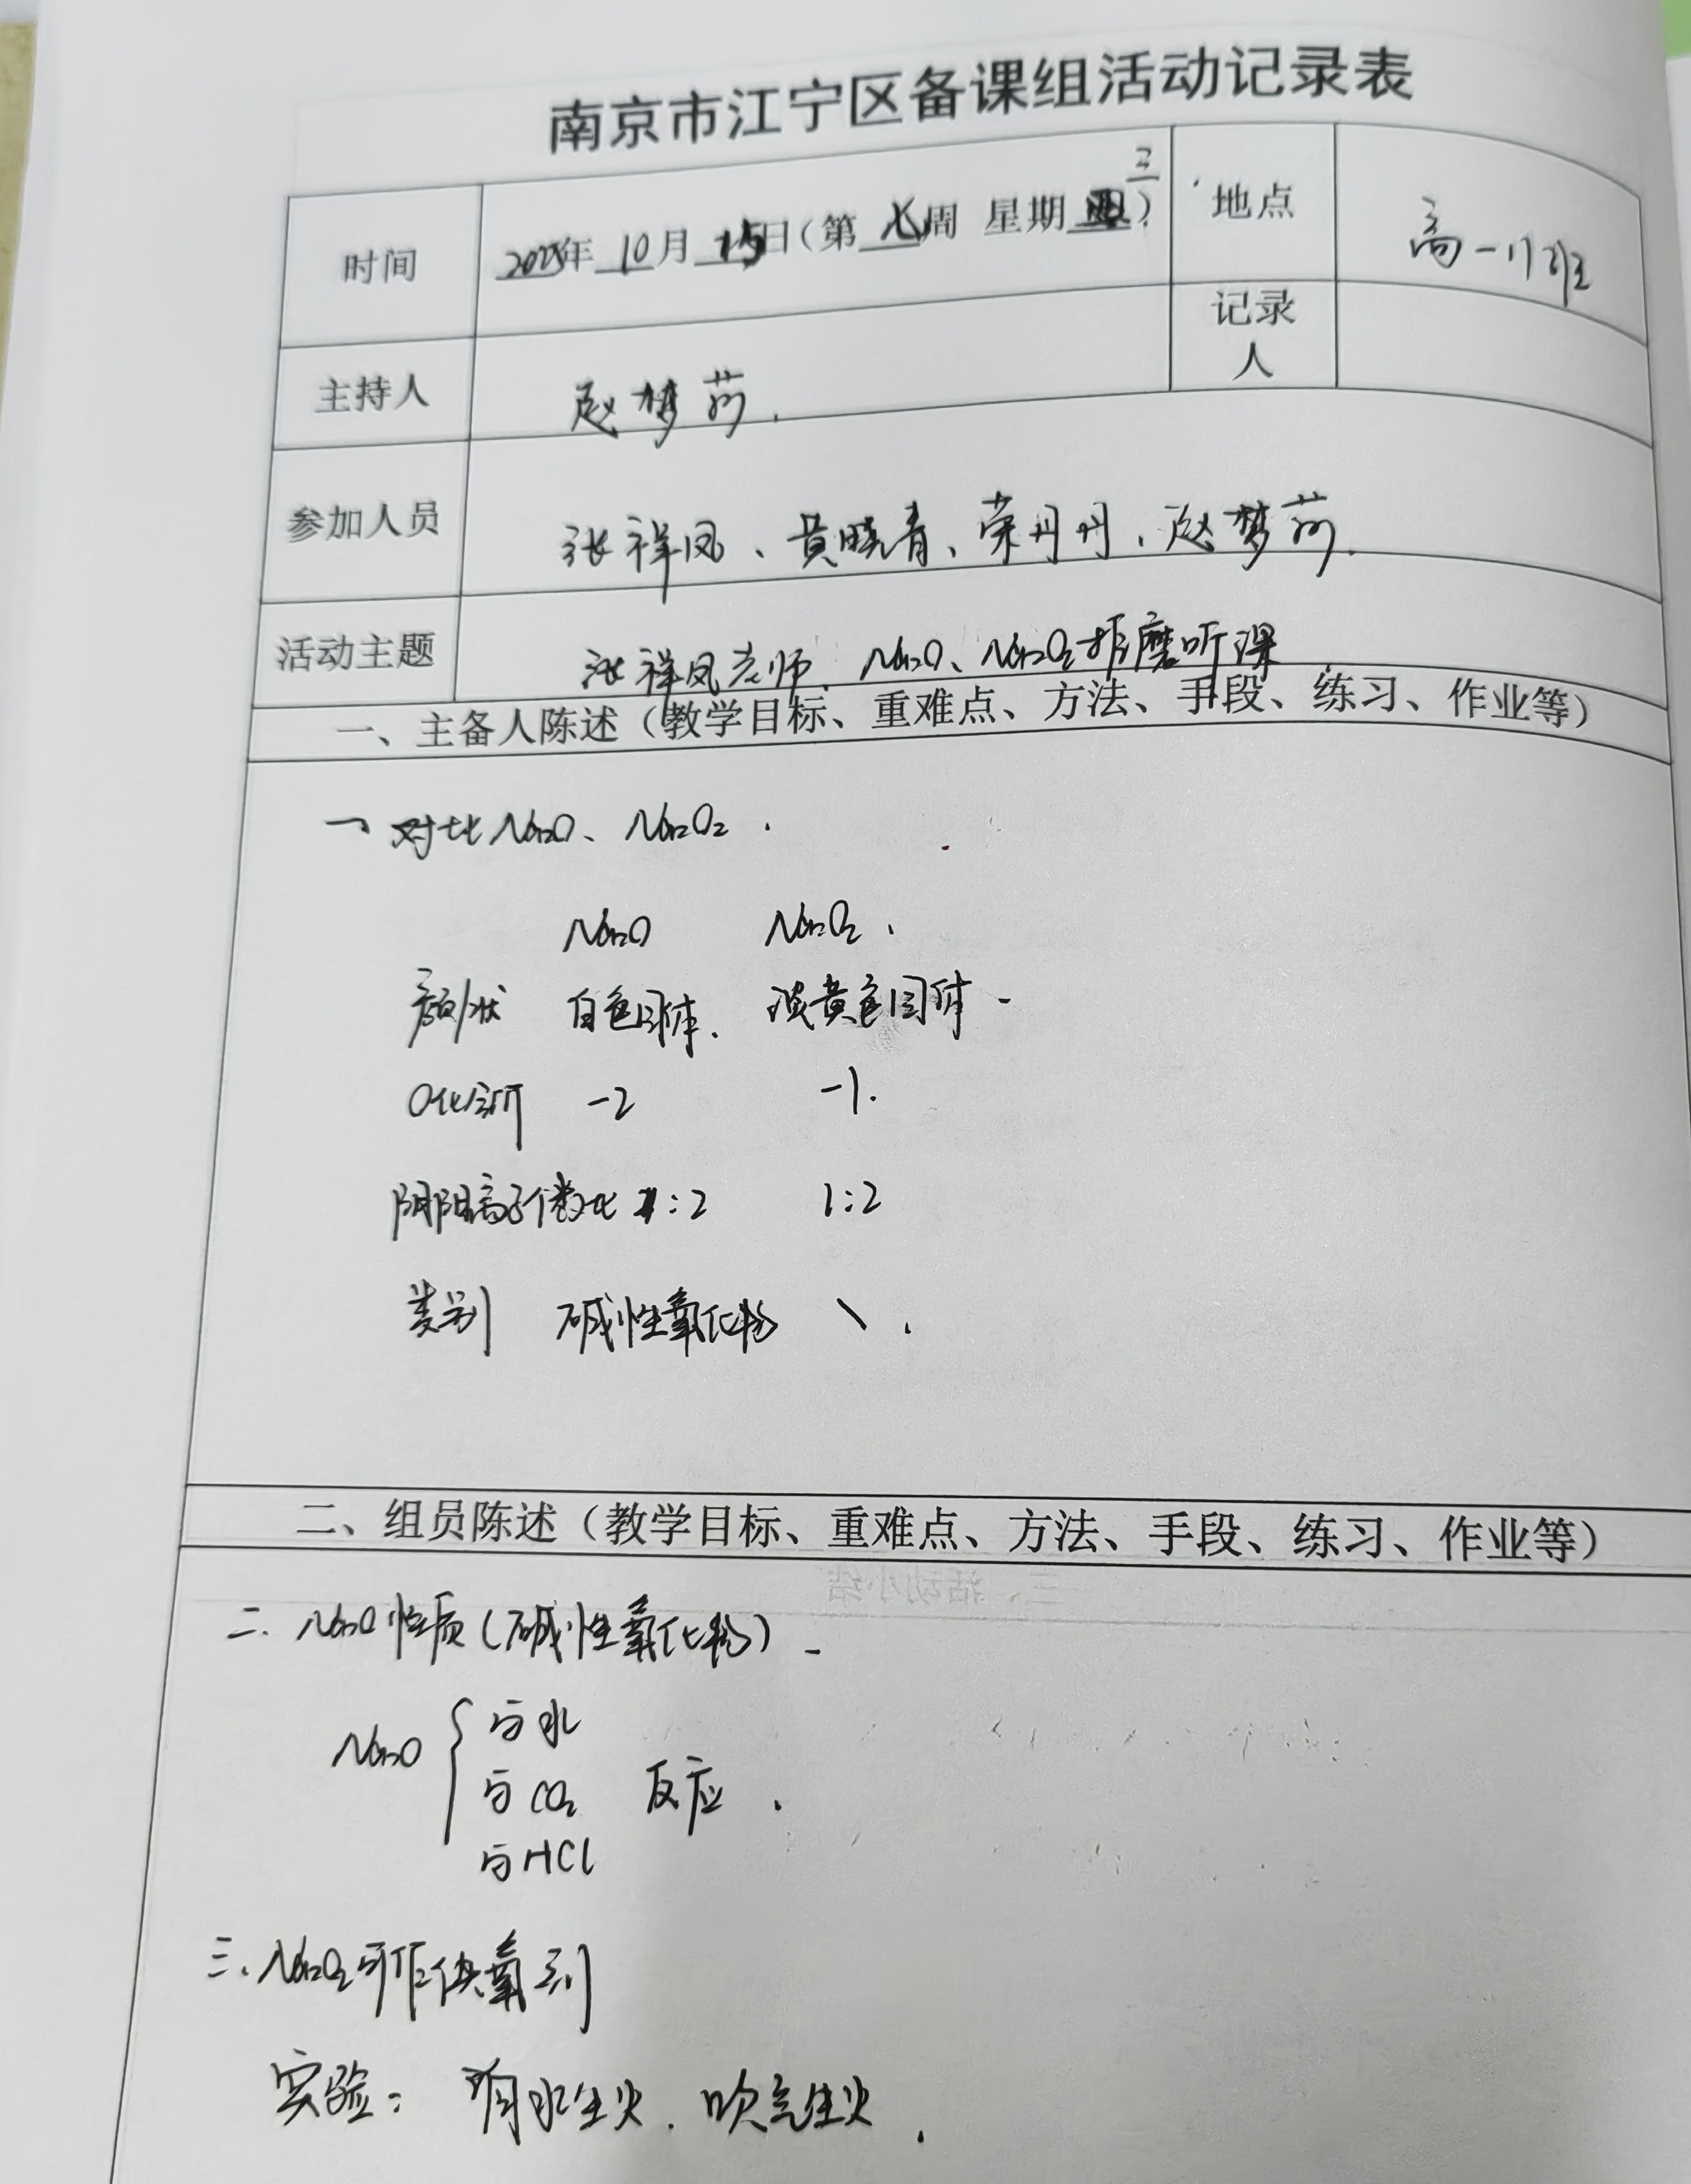 南京市江宁区备课组活动记录表
时间 2025年 10月 15日(第 七周 星期 三) 地点 高一11班
主持人 赵梦荷. 记录人
参加人员 张祥凤、黄晓青、荣丹丹、赵梦荷.
活动主题 张祥凤老师、Na2O、Na2O2 推磨听课
一、主备人陈述（教学目标、重难点、方法、手段、练习、作业等）
一、对比Na2O、Na2O2.
Na2O Na2O2.
颜/状 白色固体. 淡黄色固体.
O化合价 -2 -1.
阴阳离子个数比 1:2 1:2
类别 碱性氧化物 \.
二、组员陈述（教学目标、重难点、方法、手段、练习、作业等）
三、活动小结
二. Na2O性质(碱性氧化物).
与水
Na2O { 与CO2 反应.
与HCl
三. Na2O2可作供氧剂
实验: 滴水生火. 吹气生火.